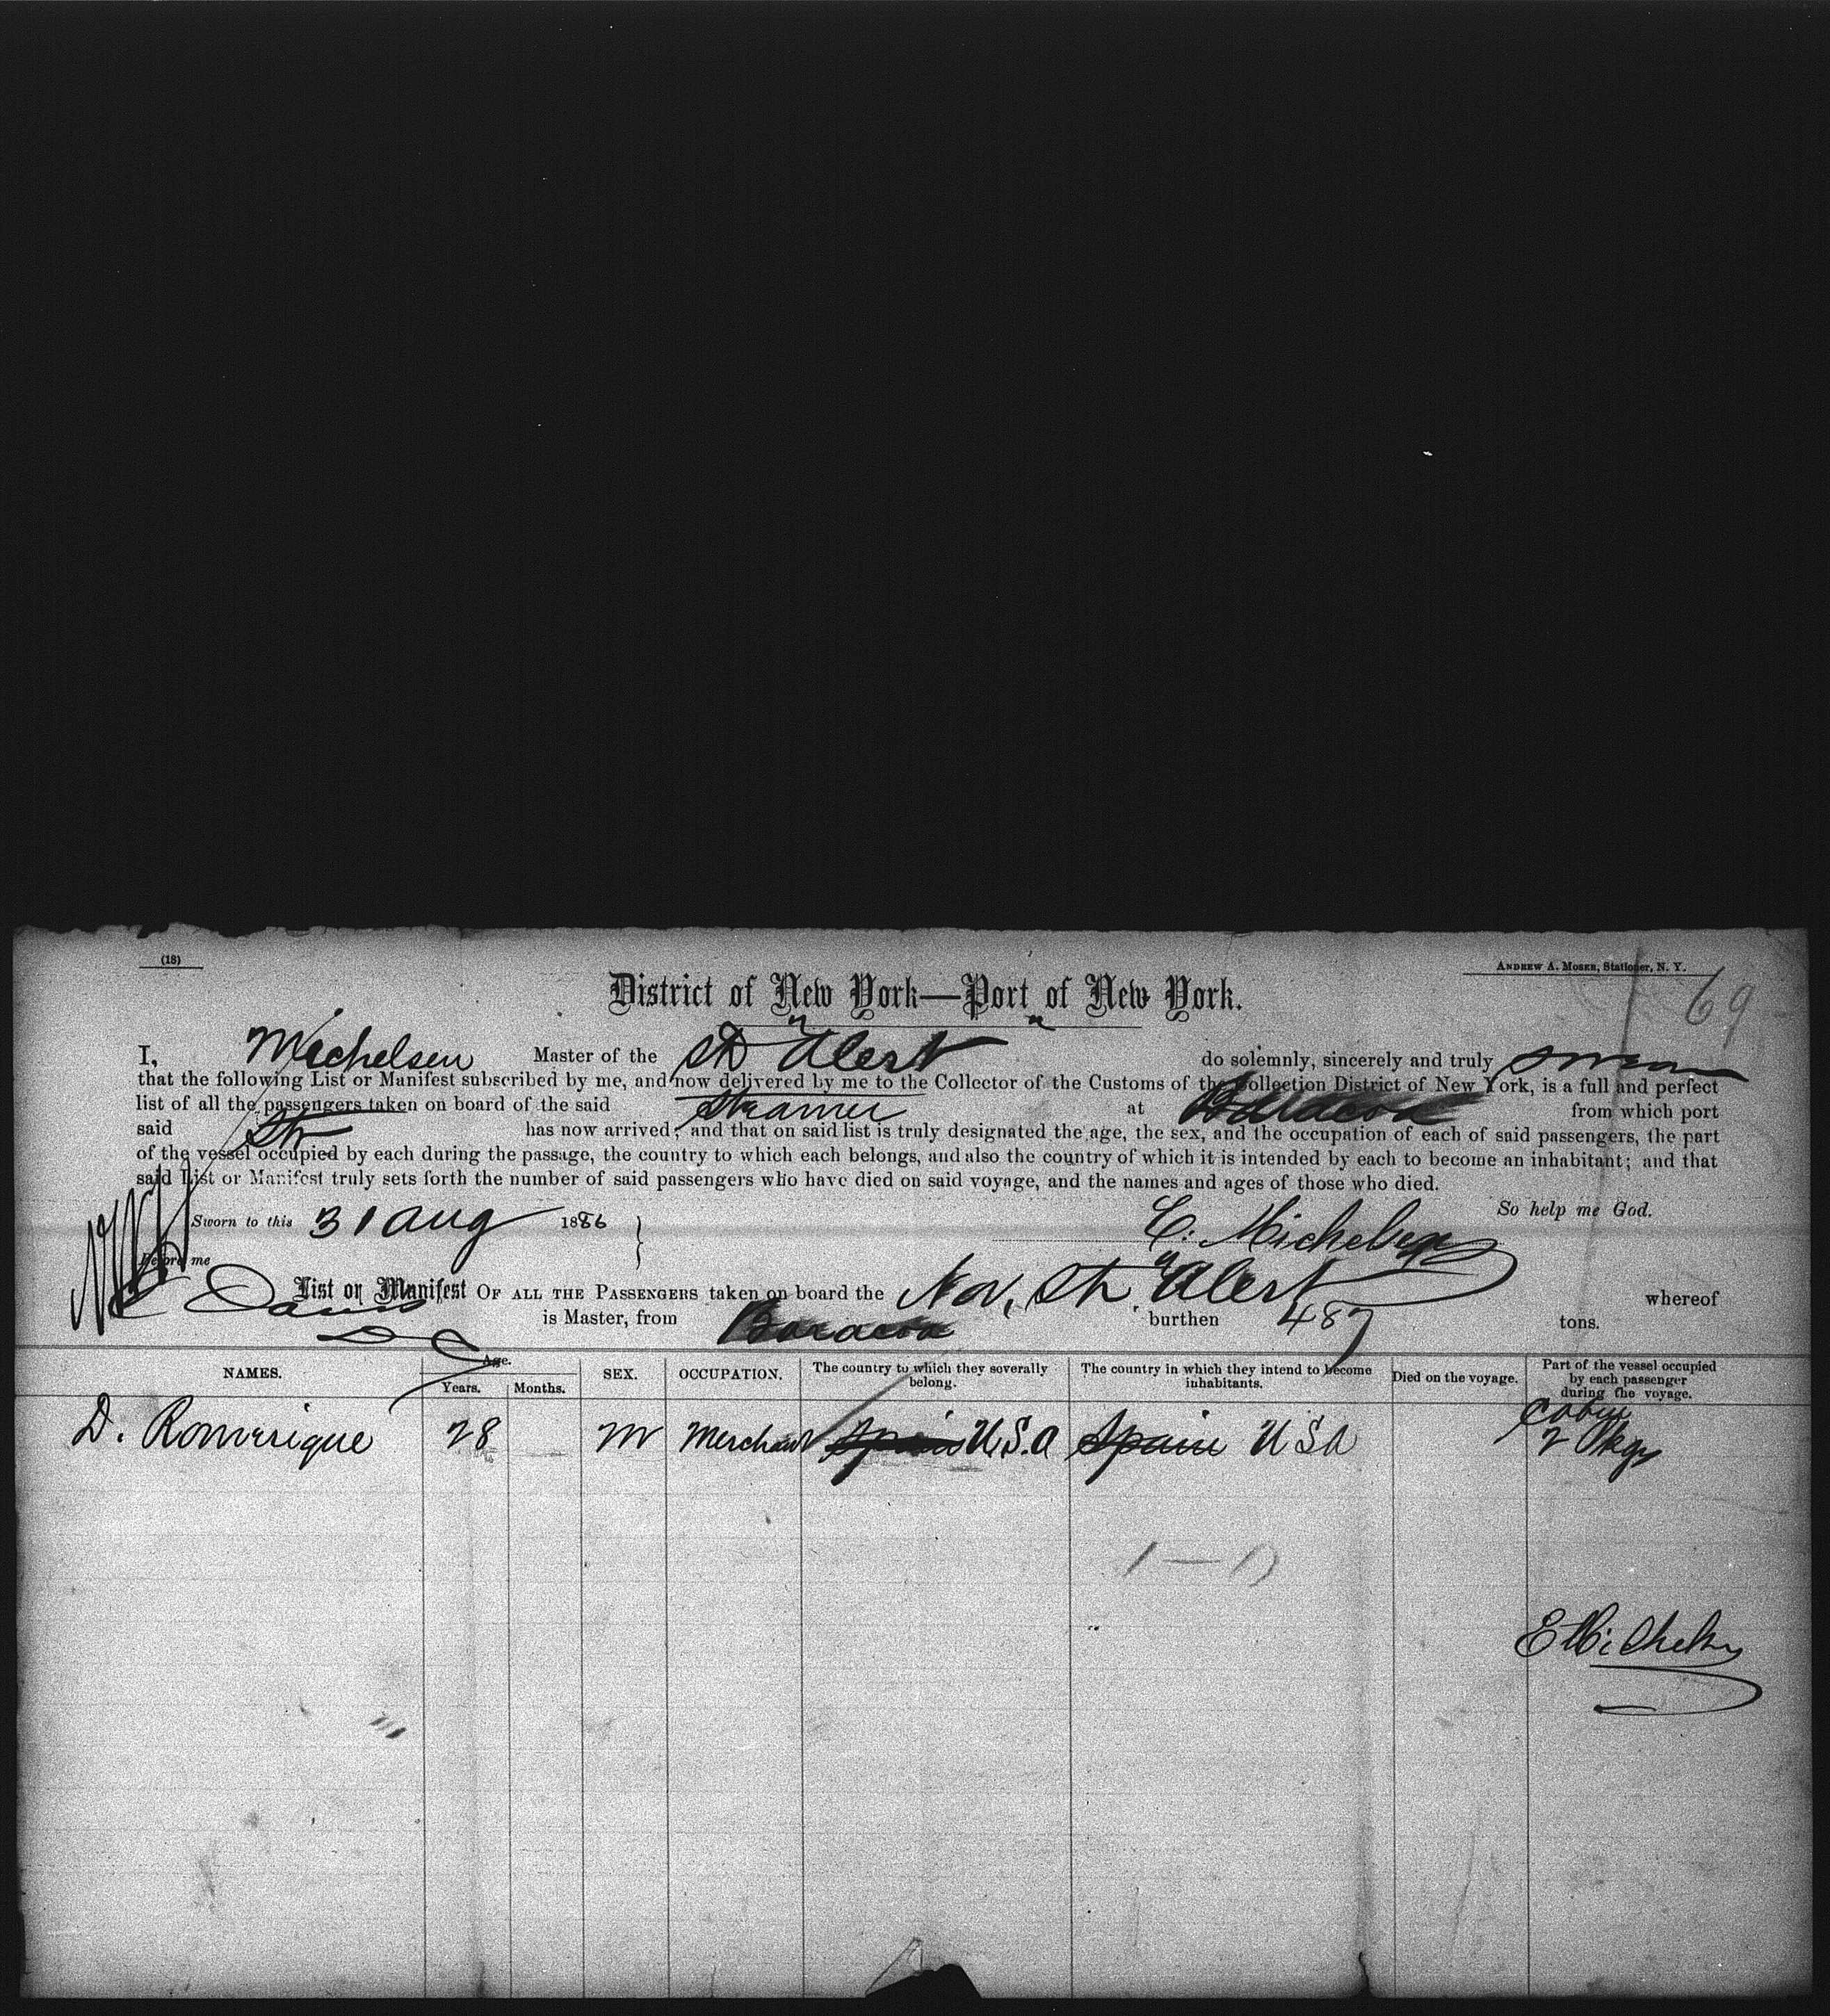 (18)
ANDREW A. MOSER, Stationer, N. Y.
69
District of New York—Port of New York.
I, Michelsen Master of the Str "Alert" do solemnly, sincerely and truly swear
that the following List or Manifest subscribed by me, and now delivered by me to the Collector of the Customs of the Collection District of New York, is a full and perfect
list of all the passengers taken on board of the said Steamer at Baracoa from which port
said Str has now arrived; and that on said list is truly designated the age, the sex, and the occupation of each of said passengers, the part
of the vessel occupied by each during the passage, the country to which each belongs, and also the country of which it is intended by each to become an inhabitant; and that
said List or Manifest truly sets forth the number of said passengers who have died on said voyage, and the names and ages of those who died.
So help me God.
Sworn to this 31 Aug 1886
C. Michelsen
Before me
Davis
List or Manifest OF ALL THE PASSENGERS taken on board the Nor. Str "Alert" whereof
is Master, from Baracoa burthen 487 tons.
NAMES. Age. Years. Months. SEX. OCCUPATION. The country to which they severally belong. The country in which they intend to become inhabitants. Died on the voyage. Part of the vessel occupied by each passenger during the voyage.
D. Romerique 28 M Merchant Spain U.S.A Spain USA Cabin
2 Pkgs